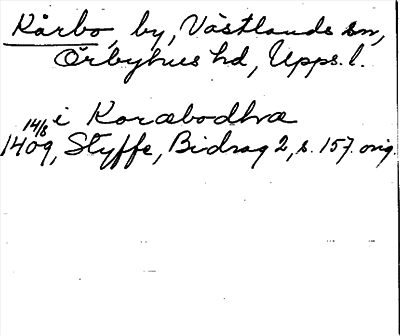 Kårbo, by, Västlands sn,
Örbyhus hd, Upps. l.
i Koræbodhræ
14/8 1409, Styffe, Bidrag 2, s. 157. orig.